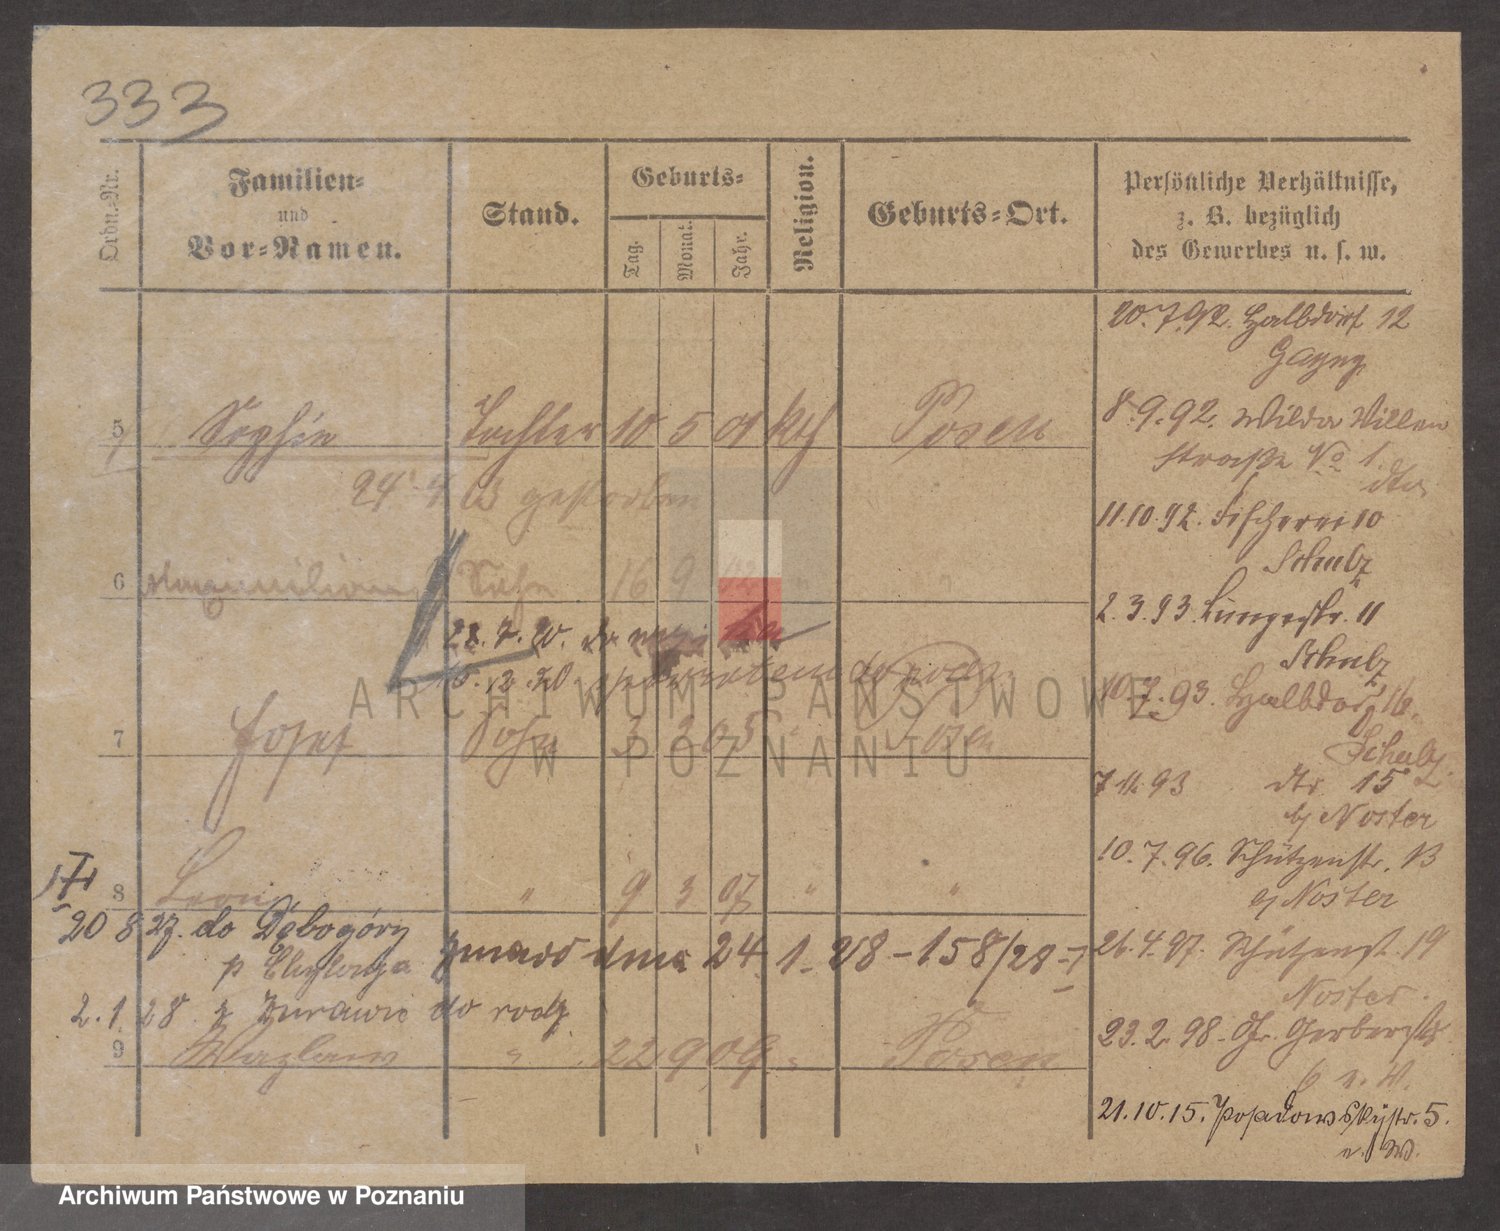 333
Ordn.-Nr.
Familien-
und
Vor-Namen.
Stand.
Geburts-
Tag.
Monat.
Jahr.
Religion.
Geburts-Ort.
Persönliche Verhältnisse,
z. B. bezüglich
des Gewerbes u. s. w.
20.7.92. Halbdorf 12
8.9.92. Wilda Villen
straße No 1.
dto
11.10.92. Fischerei 10
Schulz
2.3.93. Lungestr. 11
Schulz
10.7.93. Halbdorf 16.
Schulz.
7.11.93 dto 15
bj Noster
10.7.96. Schützenstr. 13
bj Noster
26.4.97. Schützenst. 19
Noster.
23.2.98. Gr. Gerberstr
6 n. W.
21.10.15. Posadowskystr. 5.
n. W.
5 Sophie Tochter 10 5 01 kth Posen
gestorben
6 Maximilian Sohn 16 9 " "
22.7.20. do
15.2.20. do rodz.
7 Josef Sohn 3 3 05 " Posen
8 Leon " 9 3 07 " "
20 8 27. do Dębogóry
p
zmarł dnia 24. 1. 28 – 158/28 – I
2.1.28 z Żurawic do rodz.
9 Wazlaw " 22 9 09 " Posen
ARCHIWUM PAŃSTWOWE
W POZNANIU
Archiwum Państwowe w Poznaniu